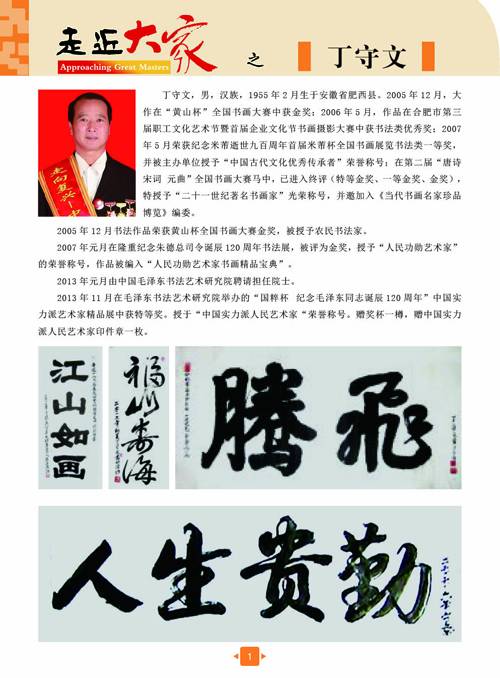 走近大家
Approaching Great Masters
之
丁守文
丁守文，男，汉族，1955 年 2 月生于安徽省肥西县。2005 年 12 月，大
作在“黄山杯”全国书画大赛中获金奖；2006 年 5 月，作品在合肥市第三
届职工文化艺术节暨首届企业文化节书画摄影大赛中获书法类优秀奖；2007
年 5 月荣获纪念米芾逝世九百周年首届米芾杯全国书画展览书法类一等奖，
并被主办单位授予“中国古代文化优秀传承者”荣誉称号；在第二届“唐诗
宋词 元曲”全国书画大赛马中，已进入终评（特等金奖、一等金奖、金奖），
特授予“二十一世纪著名书画家”光荣称号，并邀加入《当代书画名家珍品
博览》编委。
2005 年 12 月书法作品荣获黄山杯全国书画大赛金奖，被授予农民书法家。
2007 年元月在隆重纪念朱德总司令诞辰 120 周年书法展，被评为金奖，授予“人民功勋艺术家”
的荣誉称号，作品被编入“人民功勋艺术家书画精品宝典”。
2013 年元月由中国毛泽东书法艺术研究院聘请担任院士。
2013 年 11 月在毛泽东书法艺术研究院举办的“国粹杯 纪念毛泽东同志诞辰 120 周年”中国实
力派艺术家精品展中获特等奖。授于“中国实力派人民艺术家“荣誉称号。赠奖杯一樽，赠中国实力
派人民艺术家印件章一枚。
走向复兴
江山如画
福山寿海
腾飞
人生贵勤
1